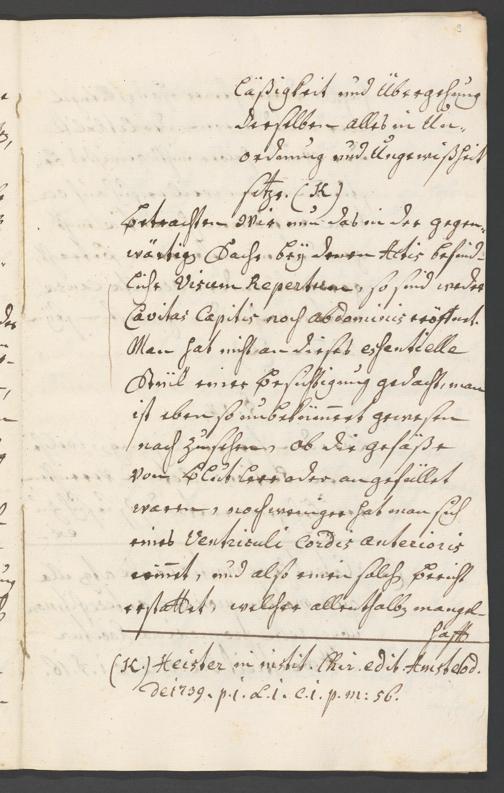 läßigkeit und Übergehung
derselben alles in Un-
ordnung und Ungewißheit
setze. (K)
Betrachten wir nun das in der gegen-
wärtig Sache bey denen Actis befind-
liche Visum Repertum, so sind weder
Cavitas Capitis noch abdominis eröffnet.
Man hat nicht an dieses essentielle
Stück einer Besichtigung gedacht, man
ist eben so unbekümert gewesen
nach zusehen, ob die gefäße
von Blut leer oder angefüllet
waren, noch weniger hat man sich
eines Ventriculi Cordis anterioris
erinnert, und also einen solch Bericht
erstattet, welcher allenthalb mangel-
hafft
(K.) Heister in instit. Chir. edit. Amstelod.
de 1739. p. 1. L. 1. c. 1. p. m: 56.